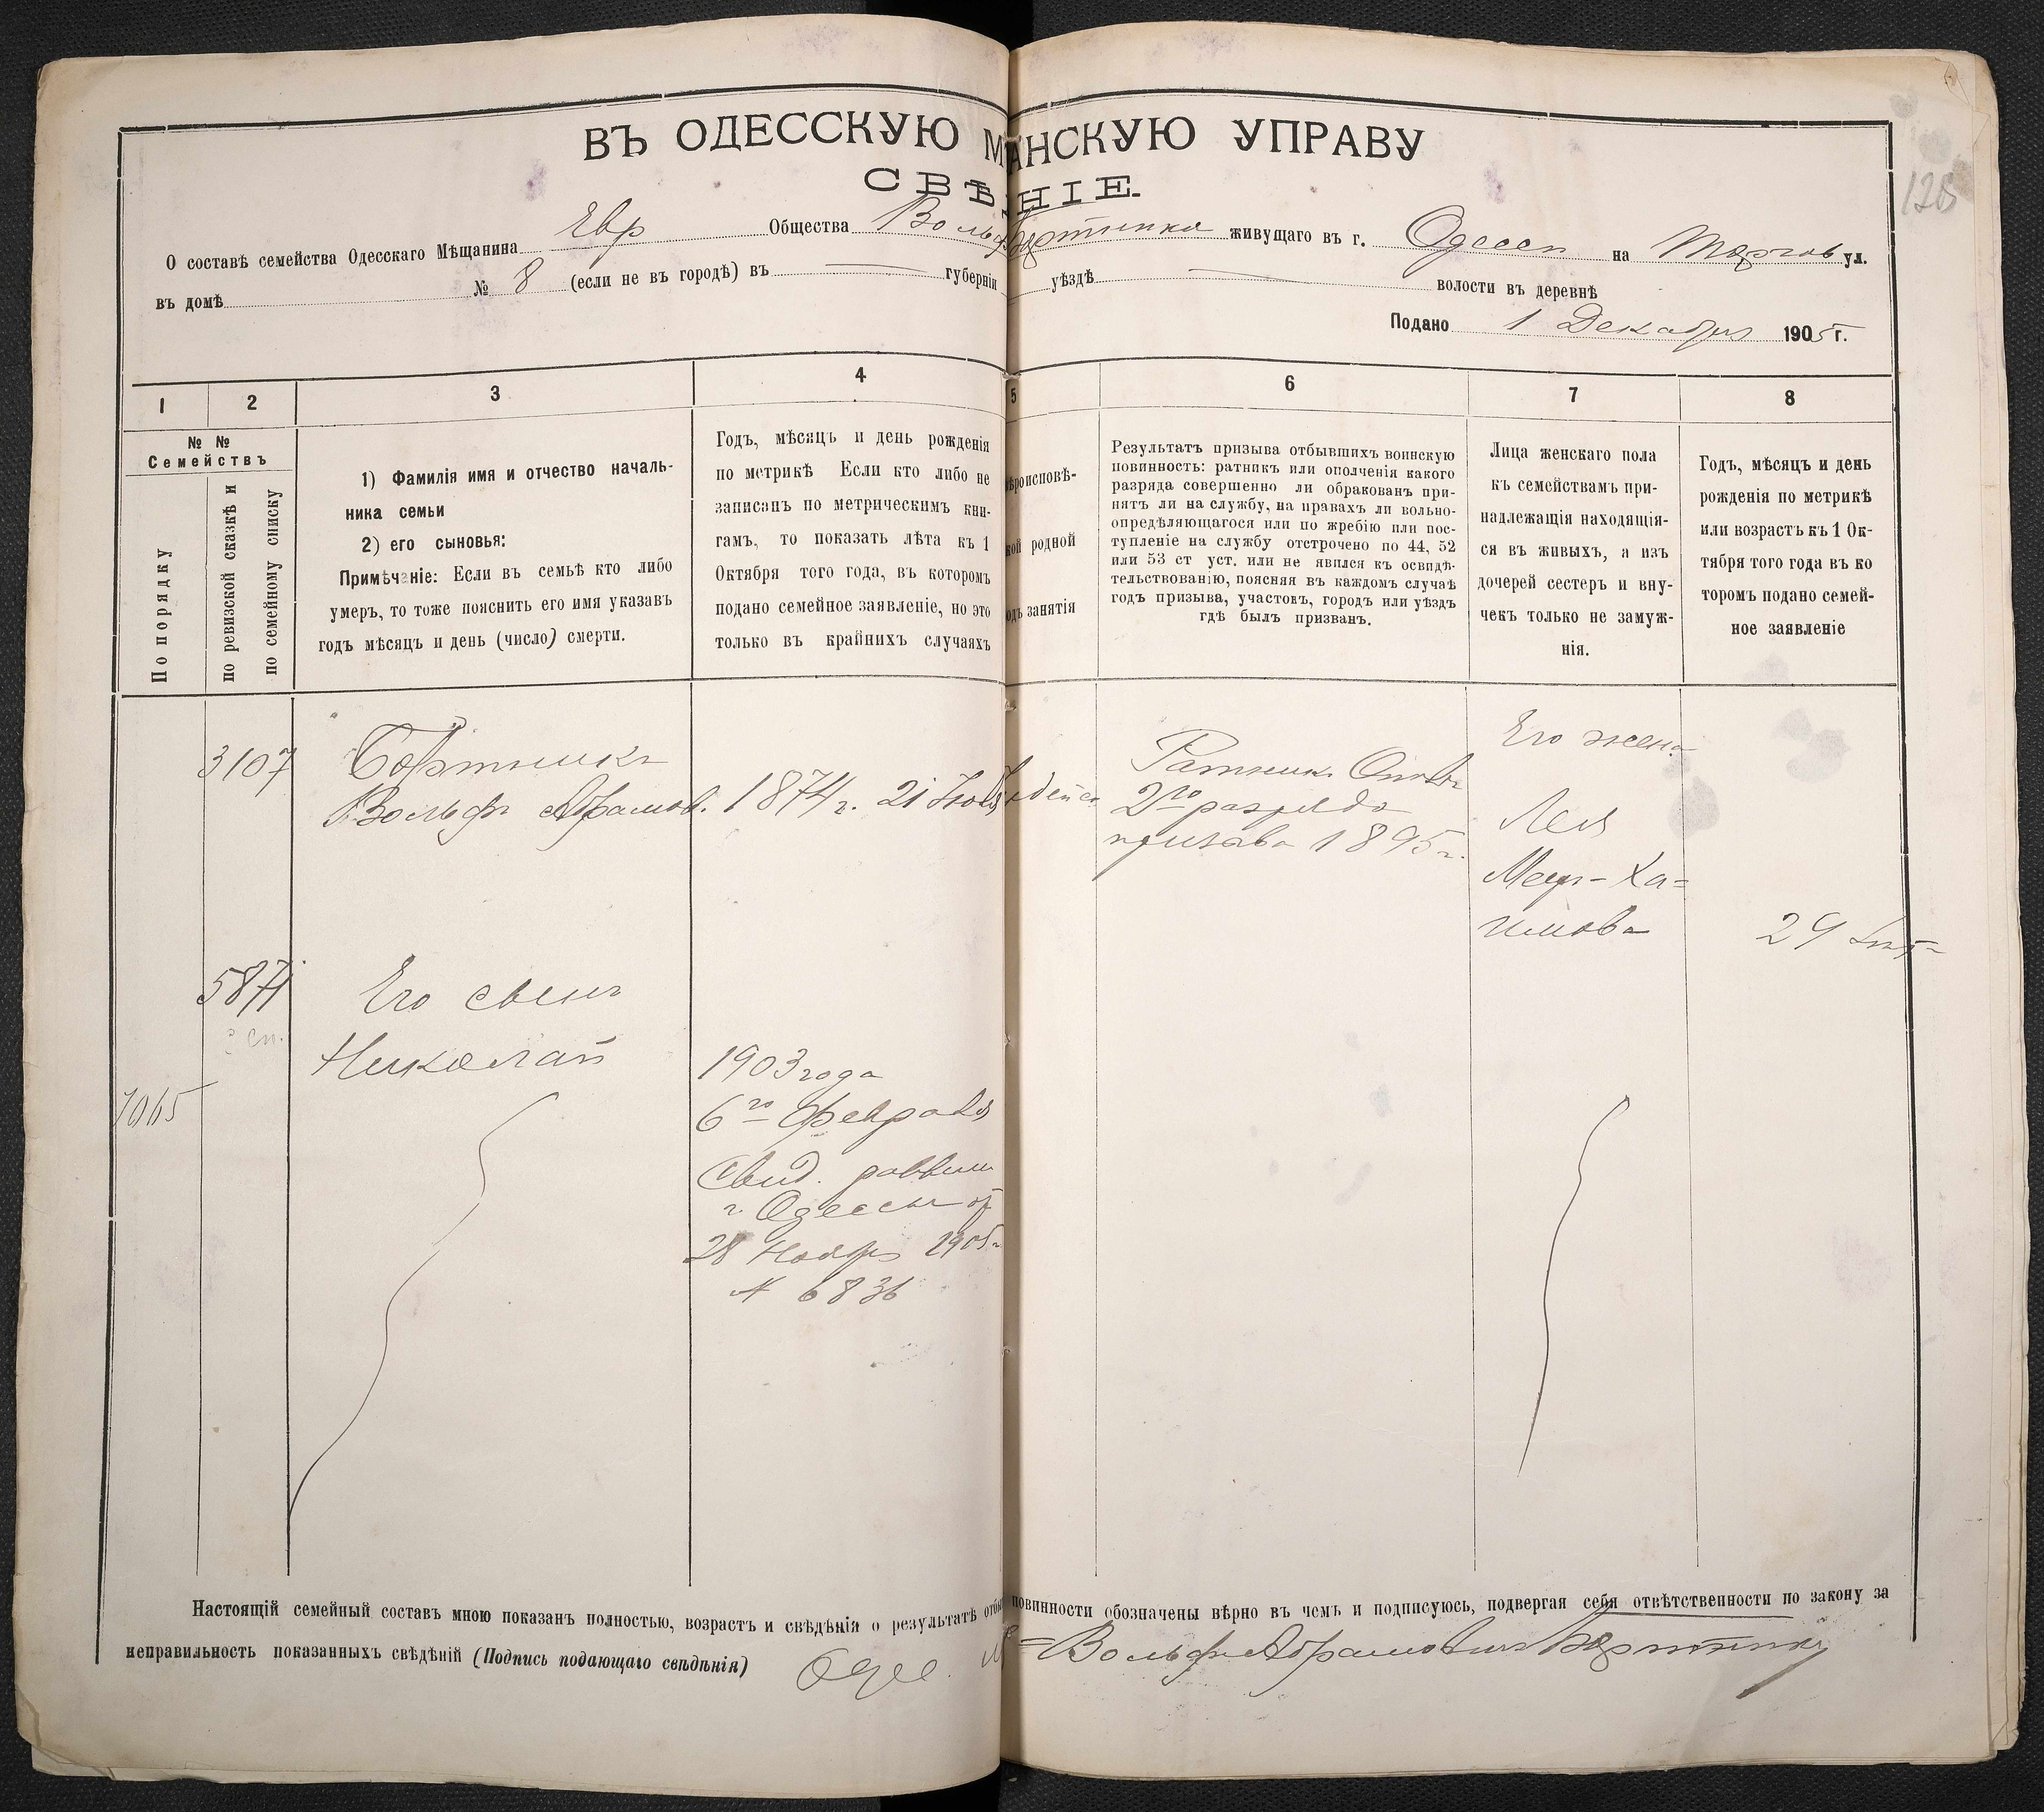 128
ВЪ ОДЕССКУЮ М АНСКУЮ УПРАВУ
СВѢ НІЕ.
О составѣ семейства Одесскаго Мѣщанина Евр Общества Вольфа Бортника живущаго въ г. Одессѣ на Торгов ул.
въ домѣ № 8 (если не въ городѣ) въ — губерніи уѣздѣ — волости въ деревнѣ
Подано 1 Декабря 1905 г.
1 2 3 4 5 6 7 8
№ №
Семействъ
По порядку
по ревизской сказкѣ и
по семейному списку
1) Фамилія имя и отчество началь-
ника семьи
2) его сыновья:
Примѣчаніе: Если въ семьѣ кто либо
умеръ, то тоже пояснить его имя указавъ
годъ мѣсяцъ и день (число) смерти.
Годъ, мѣсяцъ и день рожденія
по метрикѣ Если кто либо не
записанъ по метрическимъ кни-
гамъ, то показать лѣта къ 1
Октября того года, въ которомъ
подано семейное заявленіе, но это
только въ крайнихъ случаяхъ
ѣроисповѣ-
кой родной
одъ занятія
Результатъ призыва отбывшихъ воинскую
повинность: ратникъ или ополченія какого
разряда совершенно ли обракованъ при-
нятъ ли на службу, на правахъ ли вольно-
опредѣляющагося или по жребію или пос-
тупленіе на службу отстрочено по 44, 52
или 53 ст уст. или не явился къ освидѣ-
тельствованію, поясняя въ каждомъ случаѣ
годъ призыва, участокъ, городъ или уѣздъ
гдѣ былъ призванъ.
Лица женскаго пола
къ семействамъ при-
надлежащія находящія-
ся въ живыхъ, а изъ
дочерей сестеръ и вну-
чекъ только не замуж-
нія.
Годъ, мѣсяцъ и день
рожденія по метрикѣ
или возрастъ къ 1 Ок-
тября того года въ ко
торомъ подано семей-
ное заявленіе
3107
Бортникъ
Вольфъ Абрамов.
1874 г. 21 Іюля
Іудейск
Ратник. Ополч
2го разряда
призыва 1895 г.
Его жена
Лея
Меер-Ха=
имова
29 лѣтъ
5871
Сп.
Его сынъ
Николай
7065
1903 года
6го Февраля
Свид. раввин
г. Одессы от
28 Ноябр 1905 г
№ 6836
Настоящій семейный составъ мною показанъ полностью, возрастъ и свѣдѣнія о результатѣ отбы повинности обозначены вѣрно въ чемъ и подписуюсь, подвергая себя отвѣтственности по закону за
неправильность показанныхъ свѣдѣній (Подпись подающаго свѣдѣнія) Одес. М= Вольфъ Абрамовичъ Бортникъ